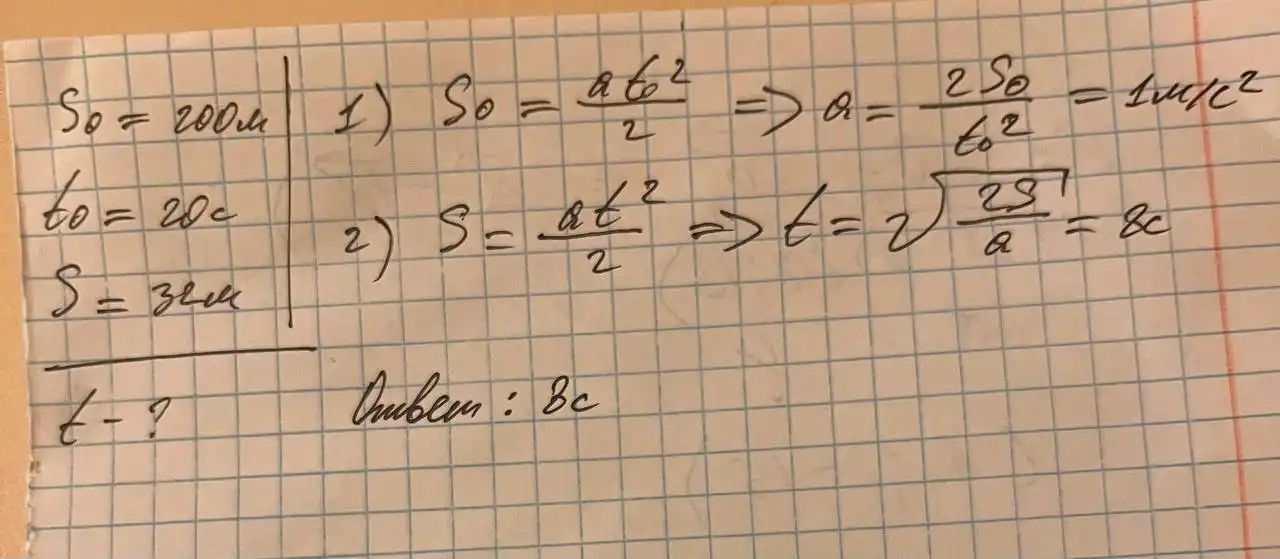 S₀ = 200м
t₀ = 20с
S = 32м
t - ?
1) S₀ = at₀²/2 => a = 2S₀/t₀² = 1м/с²
2) S = at²/2 => t = 2√(2S/a) = 8с
Ответ: 8с